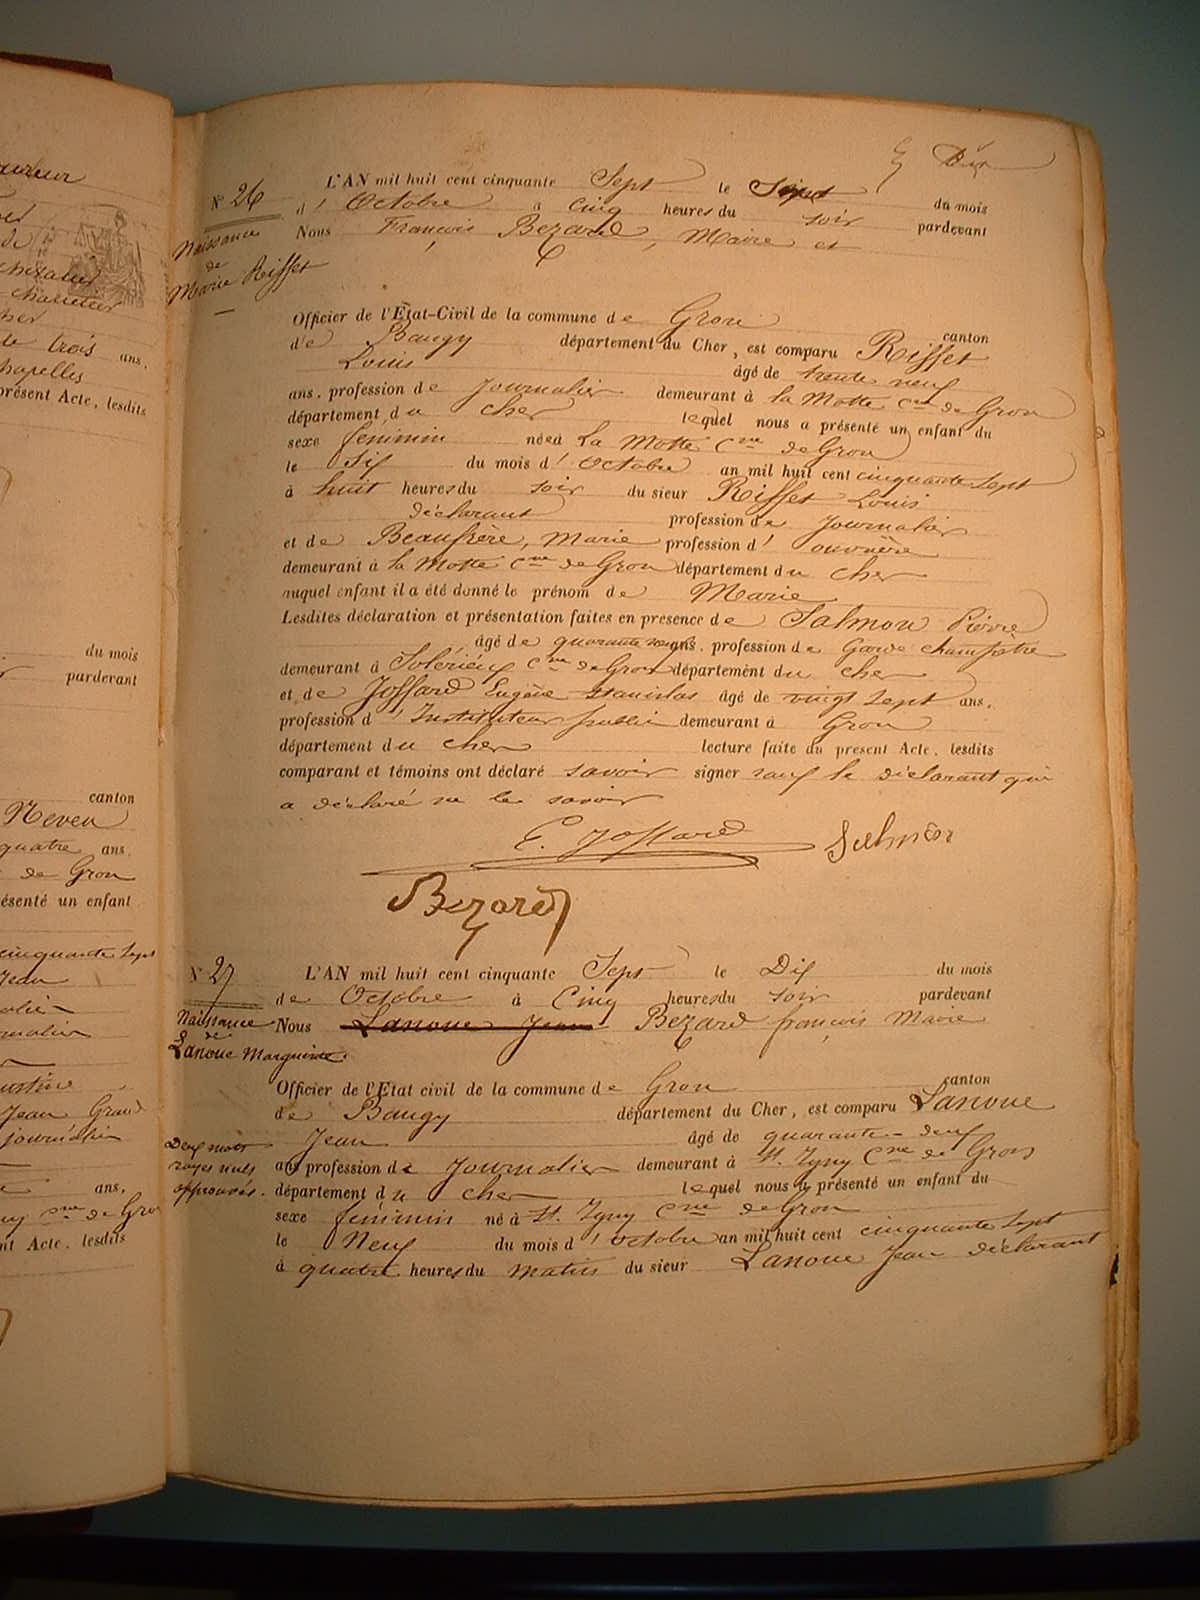 oureur
de
charetier
de trois ans.
hapelles
présent Acte, lesdits
du mois
pardevant
canton
Neveu
quatre ans.
de Gron
ésenté un enfant
cinquante sept
Jean
Jean Grand
journalier
ans.
cne de Gron
nt Acte, lesdits
Dix
N° 26
Naissance
de
Marie Riffet
L'AN mil huit cent cinquante Sept le Sept du mois
d'Octobre à cinq heures du soir pardevant
Nous François Bezard, Maire et
Officier de l'État-Civil de la commune de Gron canton
de Baugy département du Cher, est comparu Riffet
Louis âgé de trente neuf
ans, profession de Journalier demeurant à la Motte Cne de Gron
département du cher lequel nous a présenté un enfant du
sexe féminin né à La Motte Cne de Gron
le Six du mois d'Octobre an mil huit cent cinquante sept
à huit heures du soir du sieur Riffet Louis
déclarant profession de Journalier
et de Beaufrère, Marie profession d'ouvrière
demeurant à la Motte Cne de Gron département du cher
auquel enfant il a été donné le prénom de Marie
Lesdites déclaration et présentation faites en presence de Salmon Pierre
âgé de quarante ans, profession de Garde champêtre
demeurant à Solérieux Cne de Gron département du cher
et de Joffard Eugène Stanislas âgé de vingt sept ans,
profession d'Instituteur public demeurant à Gron
département du cher lecture faite du present Acte, lesdits
comparant et témoins ont déclaré savoir signer sauf le déclarant qui
a déclaré ne le savoir
E. Joffard Salmon
Bezard
N° 27
Naissance
de
Lanoue Marguerite.
L'AN mil huit cent cinquante Sept le Dix du mois
de Octobre à Cinq heures du soir pardevant
Nous Lanoue Jean Bezard françois Maire
Officier de l'Etat civil de la commune de Gron canton
de Baugy département du Cher, est comparu Lanoue
Jean âgé de quarante-deux
ans profession de Journalier demeurant à St. Igny Cne de Gron
département du cher lequel nous a présenté un enfant du
sexe féminin né à St. Igny Cne de Gron
le Neuf du mois d'octobre an mil huit cent cinquante sept
à quatre heures du matin du sieur Lanoue Jean déclarant
Deux mots
rayés nuls
approuvés.